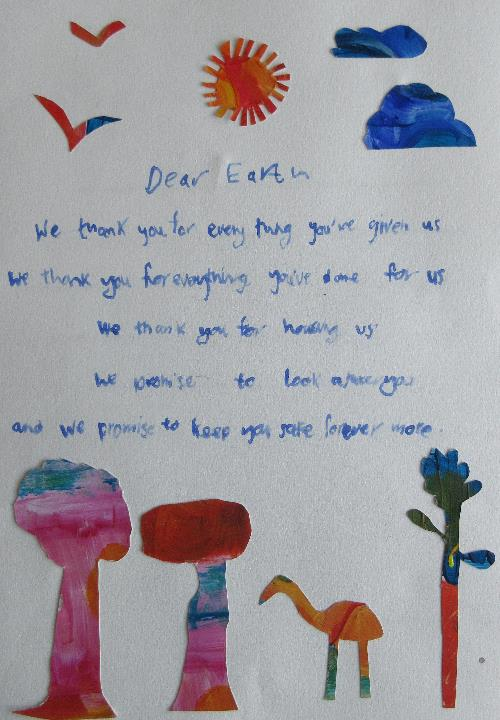 Dear Earth
We thank you for every thing you've given us
We thank you for everything you've done for us
We thank you for having us
We promise to look after you
and we promise to keep you safe forever more.